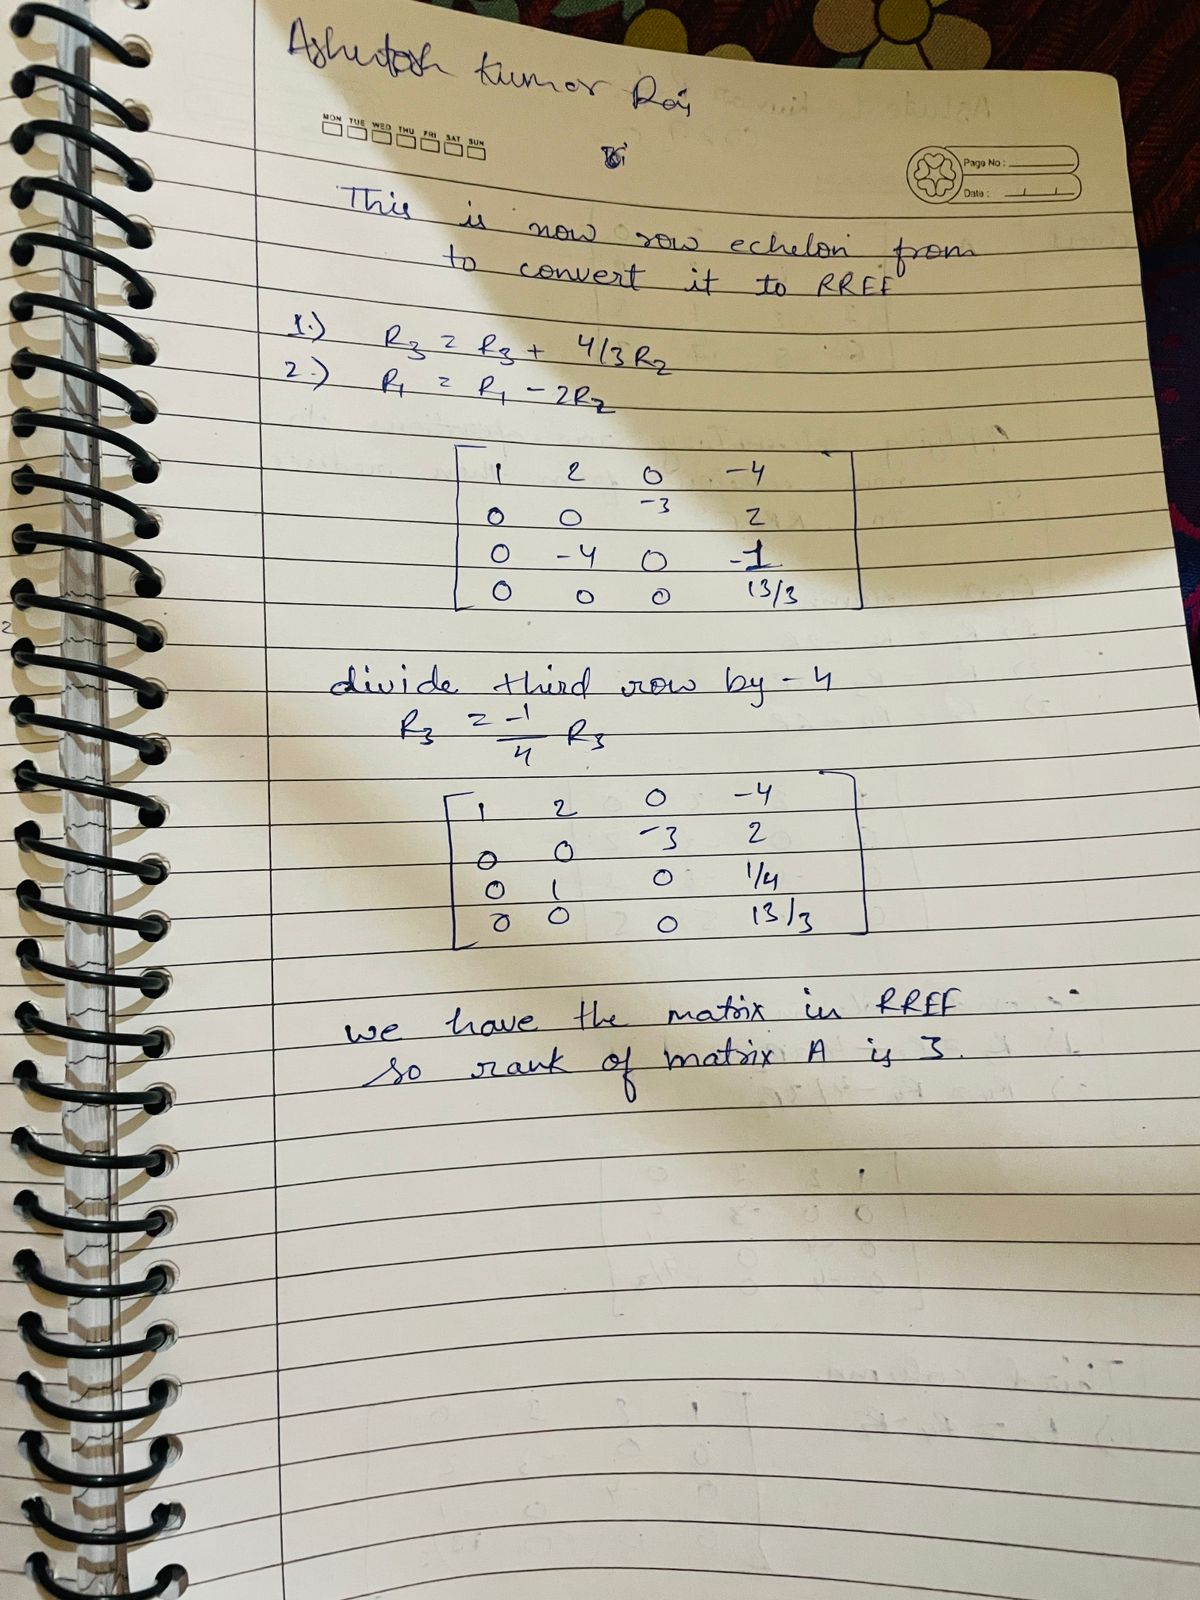 Ashutosh Kumar Rai
MON TUE WED THU FRI SAT SUN
Page No :
Date :
This is now row echelon from
to convert it to RREF
1.) R3 = R3 + 4/3 R2
2.) R1 = R1 - 2R2
1 2 0 -4
0 0 -3 2
0 -4 0 -1
0 0 0 13/3
divide third row by -4
R3 = -1/4 R3
1 2 0 -4
0 0 -3 2
0 1 0 1/4
0 0 0 13/3
we have the matrix in RREF
so rank of matrix A is 3.